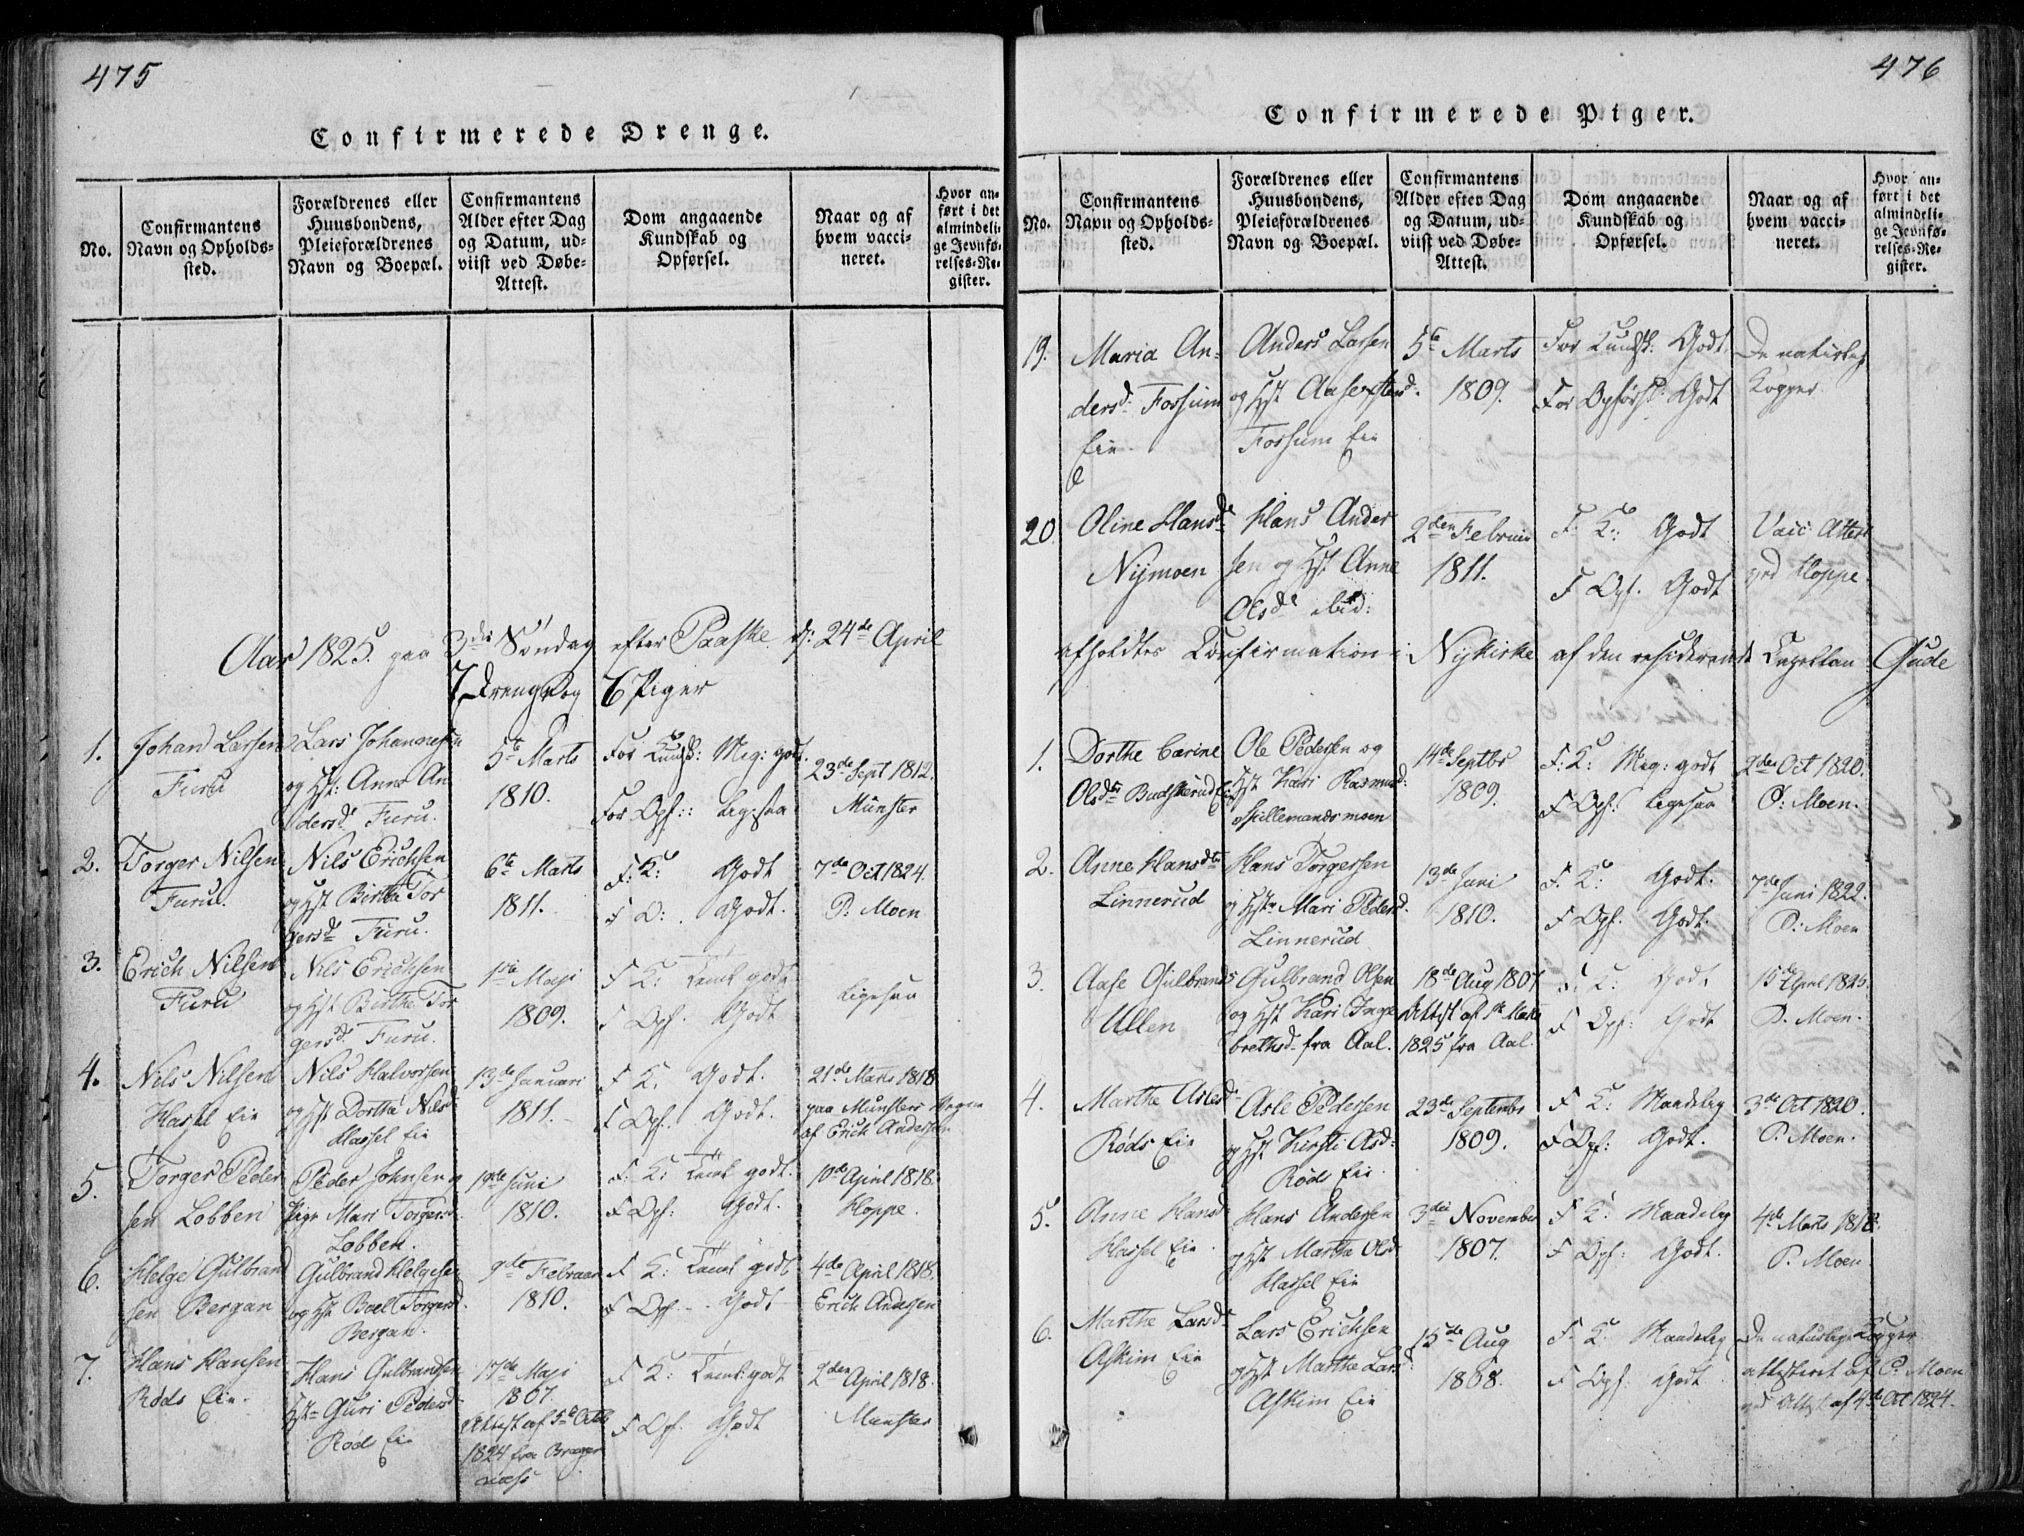 475
Confirmerede Drenge.
No.
Confirmantens
Navn og Opholds-
sted.
Forældrenes eller
Huusbondens,
Pleieforældrenes
Navn og Boepæl.
Confirmantens
Alder efter Dag
og Datum, ud-
viist ved Døbe-
Attest.
Dom angaaende
Kundskab og
Opførsel.
Naar og af
hvem vacci-
neret.
Hvor an-
ført i det
almindeli-
ge Jevnfø-
relses-Re-
gister.
Aar 1825. paa 3die Søndag efter Paaske d: 24de April
7 Drenge og 6 Piger
1.
Johan Larsen
Furu
Lars Johannesen
og Hst: Anne An
dersd. Furu.
5te Marts
1810.
For Kundsk: Meg: godt.
For Opf:: Ligesaa
23de Sept 1812.
Münster
2.
Torger Nilsen
Furu.
Nils Erichsen
og Hst Birthe Tor
gersd. Furu.
6te Marts
1811.
F: K: Godt
F O: Godt.
7de Oct 1824.
P: Moen
3.
Erich Nilsen
Furu
Nils Erichsen
og Hst Birthe Tor
gersd. Furu.
1ste Maji
1809.
F K: Teml godt
F Opf. Godt
Ligesaa
4.
Nils Nilsen
Hassel Eie
Nils Halvorsen
og Hst Dorthe Nilsd.
Hassel Eie
13de Januari
1811.
F K. Godt.
F Opf. Godt.
21de Marts 1818
paa Münsters Vegne
af Erich Andersen
5.
Torger Peder
sen Lobben
Peder Johnsen og
Pige Mari Torgersd.
Lobben.
Juni
1810.
F: K: Teml godt.
F Opf: Godt.
10de April 1818.
Hoppe.
6.
Helge Gulbrand
sen Bergan
Gulbrand Helgesen
og Hst Boel Torgersd.
Bergan.
9de Februar
1810.
F K: Teml godt
F Opf. Godt
4de April 1818.
Erich Andersen
7.
Hans Hansen
Røds Eie.
Hans Gulbrandsen
Hst Guri Pedersd.
Rød Eie
17de Maji
1807.
Attest af 5te Octb
1824 fra Brager
næss
F K: Teml: godt
F Opf. Godt
2den April 1818.
Münster
476
Confirmerede Piger.
No.
Confirmantens
Navn og Opholds-
sted.
Forældrenes eller
Huusbondens,
Pleieforældrenes
Navn og Boepæl.
Confirmantens
Alder efter Dag
og Datum, ud-
viist ved Døbe-
Attest.
Dom angaaende
Kundskab og
Opførsel.
Naar og af
hvem vacci-
neret.
Hvor an-
ført i det
almindeli-
ge Jevnfø-
relses-Re-
gister.
19.
Maria An-
dersd. Fossum
Eie.
Anders Larsen
og Hst Aase
Fossum Eie
5te Marts
1809.
For Kundsk: Godt
For Opførs: Godt
De naturlige
Kopper
20.
Oline Hansd.
Nijmoen
Hans Ander
sen og Hst Anne
Olsd. ibid:
2den Februar
1811.
F. K: Godt
F Opf. Godt
Vacc: Attest
ved Hoppe.
afholdtes Confirmation i Nykirke af den residerende Capellan Gude
1.
Dorthe Carine
Olsd. Buskerud Eie
Ole Pedersen og
Hst Kari Rasmusd:
Skillemandsmoen
14de Septbr
1809.
F: K: Meg: godt
F Opf: Ligesaa
2den Oct 1820.
P: Moen.
2.
Anne Hansd.
Linnerud
Hans Torgersen
og Hst. Mari Pedersd.
Linnerud
13de Juni
1810.
F. K: Godt.
F Opf. Godt.
7de Juni 1822.
P: Moen
3.
Aase Gulbrands
Ullen
Gulbrand Olsen
og Hst Kari Inge
brethsd. fra Aal.
18de Aug 1807
Attest af Marts
1825 fra Aal.
F. K: Godt
F Opf: Godt
15de April 1825.
P. Moen.
4.
Marthe Aslesd.
Røds Eie
Asle Pedersen
og Hst Kirsti Asd:
Røds Eie
23de Septembr
1809.
F K: Maadelig
F Opf: Godt.
3de Oct 1820.
P. Moen.
5.
Anne Hansd
Hassel Eie.
Hans Andersen
og Hst Marthe Olsd.
Hassel Eie
3die November
1807.
F K: Maadelig
F Opf: Godt.
4de Marts 1818.
P: Moen
6.
Marthe Larsd.
Askim Eie
Lars Erichsen
og Hst Marthe Larsd:
Askim Eie
15de Aug
1808.
F. K: Maadelig
F Opf: Godt
De naturlige Kopper
attesteret af P: Moen
ved Attest af 4de Oct 1824.